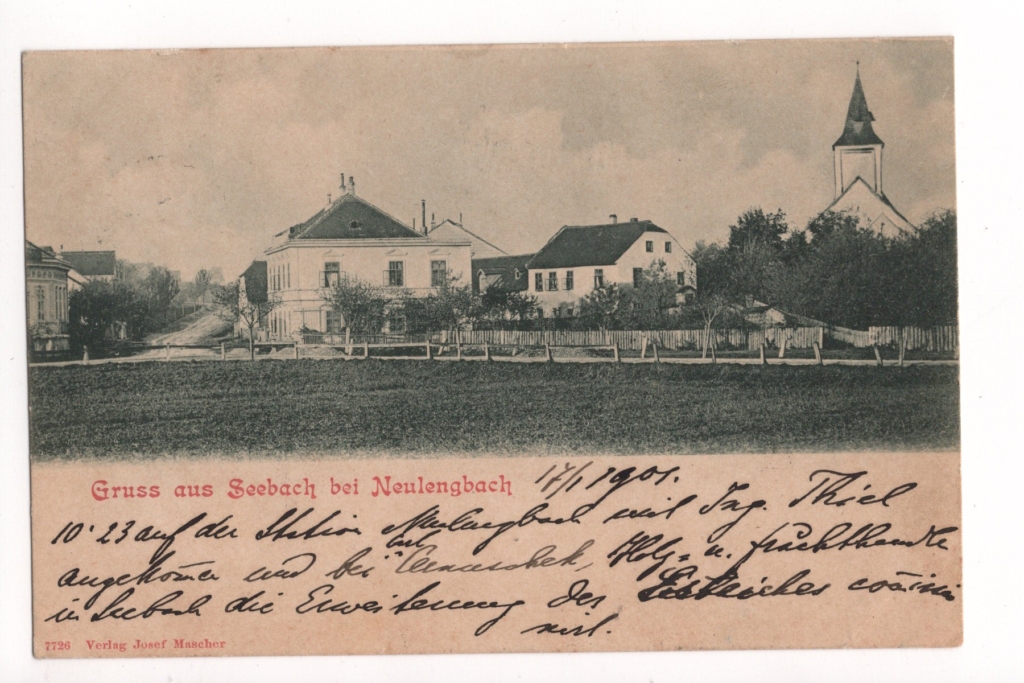 Gruss aus Seebach bei Neulengbach
17/1 1901.
10·23 auf der Station Neulengbach mit Ing. Thiel
angekom̄en und bei Holz- u. frachthandle
in Seebach die Erweiterung des
mit.
7726 Verlag Josef Mascher